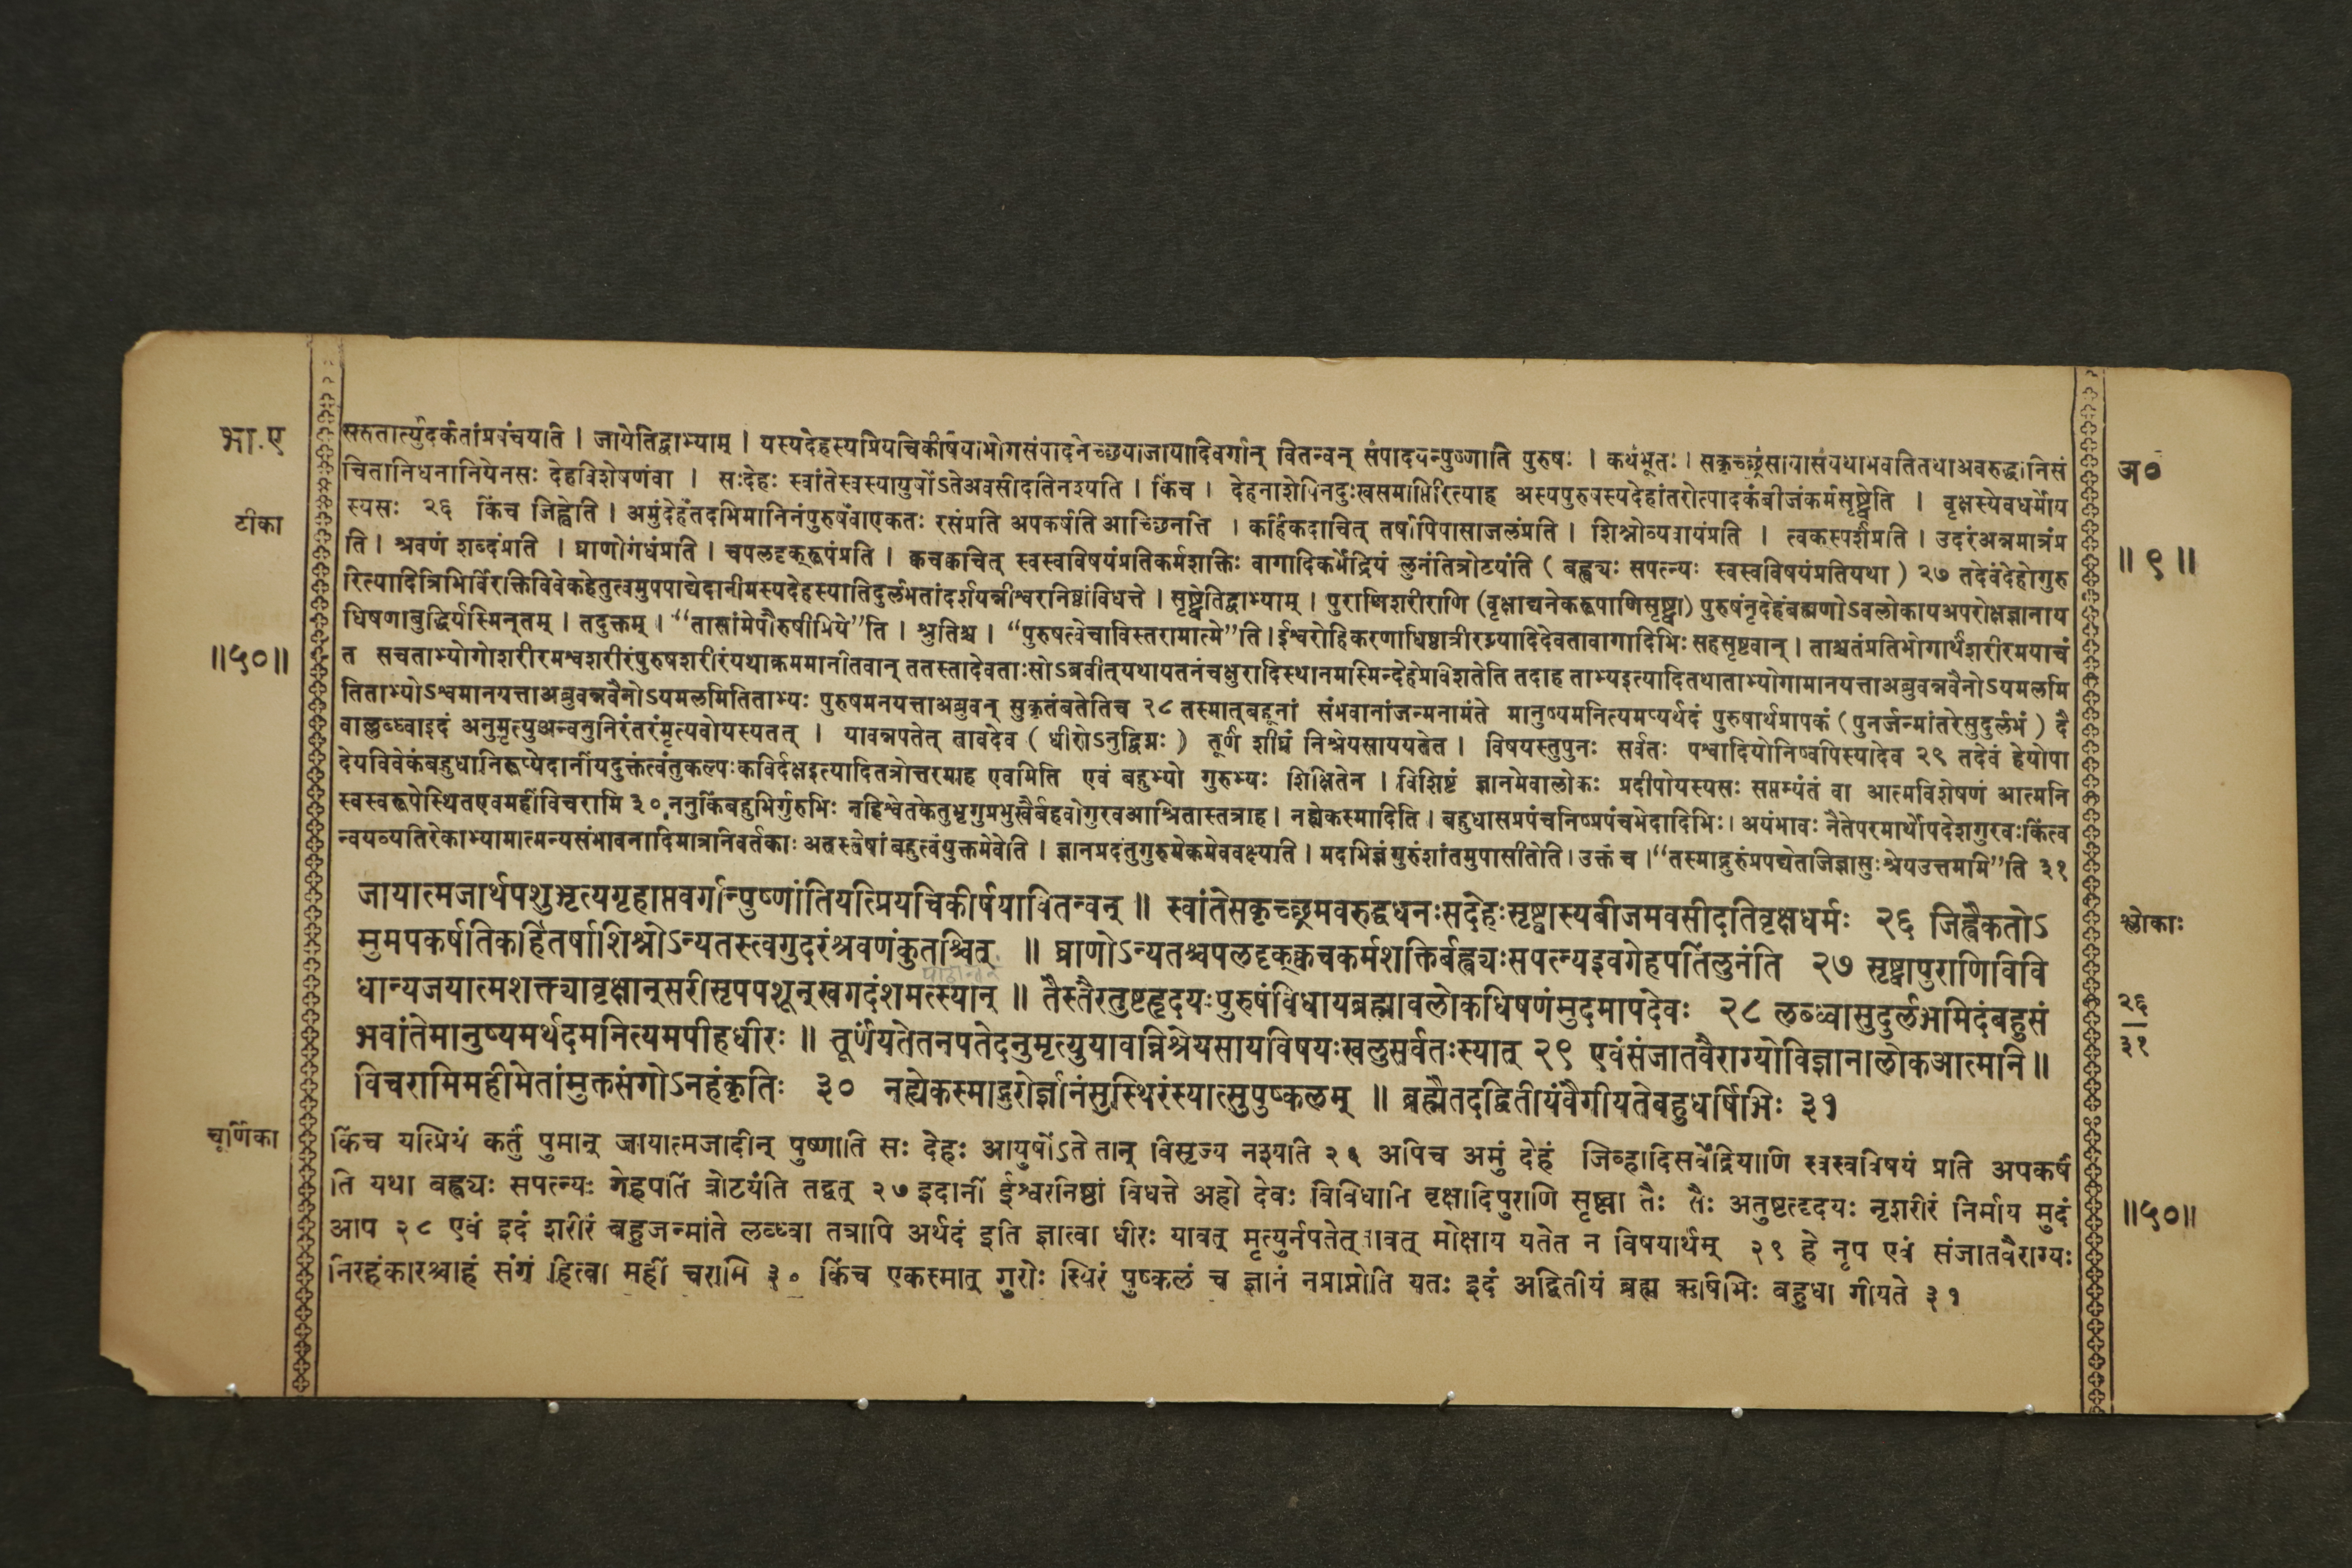 भा.ए
टीका
॥५०॥
सरुतात्युदर्कतांप्रपंचयति । जायेतिद्वाभ्याम् । यस्यदेहस्यप्रियचिकीर्षयाभोगसंपादनेच्छयाजायादिवर्गान् वितन्वन् संपादयन्पुष्णाति पुरुषः । कथंभूतः । सकृच्छ्रंसायासंयथाभवतितथाअवरुद्धानिसं
चितानिधनानियेनसः देहविशेषणंवा । सःदेहः स्वांतेस्वस्यायुषोंऽतेअवसीदतिनश्यति । किंच । देहनाशेपिनदुःखसमाप्तिरित्याह अस्यपुरुषस्यदेहांतरोत्पादकंबीजंकर्मसृष्ट्वेति । वृक्षस्येवधर्मोय
स्यसः २६ किंच जिह्वेति । अमुंदेहंतदभिमानिनंपुरुषंवाएकतः रसंप्रति अपकर्षति आच्छिनत्ति । कर्हिकदाचित् तर्षापिपासाजलंप्रति । शिश्नोव्यवायंप्रति । त्वकस्पर्शंप्रति । उदरंअन्नमात्रंप्र
ति । श्रवणं शब्दंप्रति । घ्राणोगंधंप्रति । चपलदृक्‌रूपंप्रति । क्वचक्वचित् स्वस्वविषयंप्रतिकर्मशक्तिः वागादिकर्मेंद्रियं लुनंतित्रोटयंति ( बह्व्यः सपत्न्यः स्वस्वविषयंप्रतियथा ) २७ तदेवंदेहोगुरु
रित्यादित्रिभिर्विरक्तिविवेकहेतुत्वमुपपाद्येदानीमस्यदेहस्यातिदुर्लभतांदर्शयन्नीश्वरनिष्ठांविधत्ते । सृष्ट्वेतिद्वाभ्याम् । पुराणिशरीराणि (वृक्षाद्यनेकरूपाणिसृष्ट्वा) पुरुषंनृदेहंब्रह्मणोऽवलोकायअपरोक्षज्ञानाय
धिषणाबुद्धिर्यस्मिन्‌तम् । तदुक्तम् । “तासांमेपौरुषीप्रिये”ति । श्रुतिश्च । “पुरुषत्वेचाविस्तरामात्मे”ति । ईश्वरोहिकरणाधिष्ठात्रीरग्न्यादिदेवतावागादिभिः सहसृष्टवान् । ताश्चतंप्रतिभोगार्थंशरीरमयाचं
त सचताभ्योगोशरीरमश्वशरीरंपुरुषशरीरंयथाक्रममानीतवान् ततस्तादेवताःसोऽब्रवीत्‌यथायतनंचक्षुरादिस्थानमस्मिन्देहेप्रविशतेति तदाह ताभ्यइत्यादितथाताभ्योगामानयत्ताअब्रुवन्नवैनोऽयमलमि
तिताभ्योऽश्वमानयत्ताअब्रुवन्नवैनोऽयमलमितिताभ्यः पुरुषमनयत्ताअब्रुवन् सुकृतंबतेतिच २८ तस्मात्‌बहूनां संभवानांजन्मनामंते मानुष्यमनित्यमप्यर्थदं पुरुषार्थप्रापकं (पुनर्जन्मांतरेसुदुर्लभं ) दै
वाल्लब्ध्वाइदं अनुमृत्युअन्वनुनिरंतरंमृत्यवोयस्यतत् । यावन्नपतेत् तावदेव ( धीरोऽनुद्विग्नः ) तूर्णं शीघ्रं निश्रेयसाययतेत । विषयस्तुपुनः सर्वतः पश्वादियोनिष्वपिस्यादेव २९ तदेवं हेयोपा
देयविवेकंबहुधानिरूप्येदानींयदुक्तंत्वंतुकल्पःकविर्दक्षइत्यादितत्रोत्तरमाह एवमिति एवं बहुभ्यो गुरुभ्यः शिक्षितेन । विशिष्टं ज्ञानमेवालोकः प्रदीपोयस्यसः सप्तम्यंतं वा आत्मविशेषणं आत्मनि
स्वस्वरूपेस्थितएवमहींविचरामि ३० ननुकिंबहुभिर्गुरुभिः नहिश्वेतकेतुभृगुप्रमुखैर्बहवोगुरवआश्रितास्तत्राह । नह्येकस्मादिति । बहुधासप्रपंचनिष्प्रपंचभेदादिभिः । अयंभावः नैतेपरमार्थोपदेशगुरवःकिंत्व
न्वयव्यतिरेकाभ्यामात्मन्यसंभावनादिमात्रनिवर्तकाः अतस्तेषां बहुत्वंयुक्तमेवेति । ज्ञानप्रदंतुगुरुमेकमेववक्ष्यति । मदभिज्ञंगुरुंशांतमुपासीतेति । उक्तं च । “तस्माद्गुरुंप्रपद्येतजिज्ञासुःश्रेयउत्तममि”ति ३१
जायात्मजार्थपशुभृत्यगृहाप्तवर्गान्पुष्णांतियत्प्रियचिकीर्षयावितन्वन् ॥ स्वांतेसकृच्छ्रमवरुद्धधनःसदेहःसृष्ट्वास्यबीजमवसीदतिवृक्षधर्मः २६ जिह्वैकतोऽ
मुमपकर्षतिकर्हितर्षाशिश्नोऽन्यतस्त्वगुदरंश्रवणंकुतश्चित् ॥ घ्राणोऽन्यतश्चपलदृक्‌क्वचकर्मशक्तिर्बह्व्यःसपत्न्यइवगेहपतिंलुनंति २७ सृष्ट्वापुराणिविवि
धान्यजयात्मशक्त्यावृक्षान्‌सरीसृपपशून्‌खगदंशमत्स्यान् ॥ तैस्तैरतुष्टहृदयःपुरुषंविधायब्रह्मावलोकधिषणंमुदमापदेवः २८ लब्ध्वासुदुर्लभमिदंबहुसं
भवांतेमानुष्यमर्थदमनित्यमपीहधीरः ॥ तूर्णंयतेतनपतेदनुमृत्युयावन्निश्रेयसायविषयःखलुसर्वतःस्यात् २९ एवंसंजातवैराग्योविज्ञानालोकआत्मनि ॥
विचरामिमहीमेतांमुक्तसंगोऽनहंकृतिः ३० नह्येकस्माद्गुरोर्ज्ञानंसुस्थिरंस्यात्सुपुष्कलम् ॥ ब्रह्मैतदद्वितीयंवैगीयतेबहुधर्षिभिः ३१
चूर्णिका
किंच यत्प्रियं कर्तुं पुमान् जायात्मजादीन् पुष्णाति सः देहः आयुषोंऽते तान् विसृज्य नश्यति २६ अपिच अमुं देहं जिव्हादिसर्वेंद्रियाणि स्वस्वविषयं प्रति अपकर्षं
ति यथा बह्व्यः सपत्न्यः गेहपतिं त्रोटयंति तद्वत् २७ इदानीं ईश्वरनिष्ठां विधत्ते अहो देवः विविधानि वृक्षादिपुराणि सृष्ट्वा तैः तैः अतुष्टहृदयः नृशरीरं निर्माय मुदं
आप २८ एवं इदं शरीरं बहुजन्मांते लब्ध्वा तत्रापि अर्थदं इति ज्ञात्वा धीरः यावत् मृत्युर्नपतेत् तावत् मोक्षाय यतेत न विषयार्थम् २९ हे नृप एवं संजातवैराग्यः
निरहंकारश्चाहं संगं हित्वा महीं चरामि ३० किंच एकस्मात् गुरोः स्थिरं पुष्कलं च ज्ञानं नप्राप्नोति यतः इदं अद्वितीयं ब्रह्म ऋषिभिः बहुधा गीयते ३१
अ०
॥ ९ ॥
श्लोकाः
२६
३१
॥५०॥